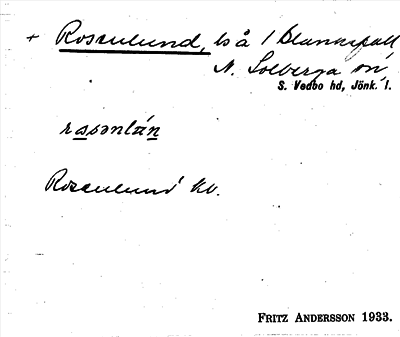 + Rosenlund, ls å 1 Blankefall
N. Solberga sn,
S. Vedbo hd, Jönk. l.
rasənlán
Rosenlund kv.
FRITZ ANDERSSON 1933.